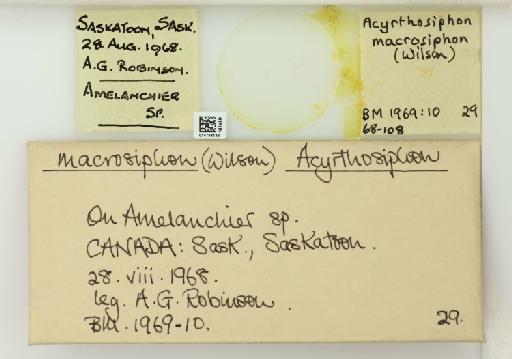 SASKATOON, SASK.
28 AUG. 1968.
A.G. ROBINSON.
AMELANCHIER
SP.
Acyrthosiphon
macrosiphon
(Wilson)
BM 1969:10 29
68-108
macrosiphon (Wilson) Acyrthosiphon
On Amelanchier sp.
CANADA: Sask., Saskatoon.
28. viii. 1968.
leg. A.G. Robinson.
BM. 1969-10. 29.